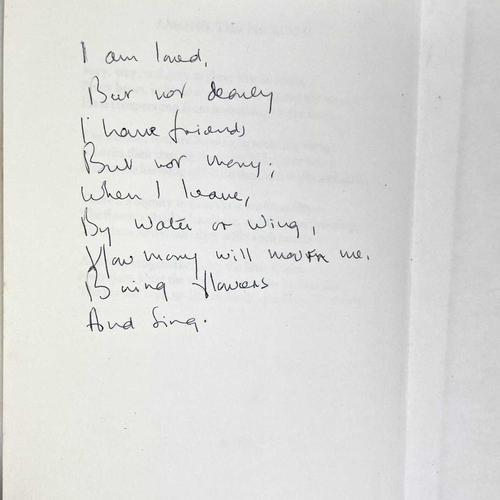 I am loved,
But not dearly
I have friends
But not many;
When I leave,
By water or wing,
How many will mourn me.
Bring flowers
And Sing.